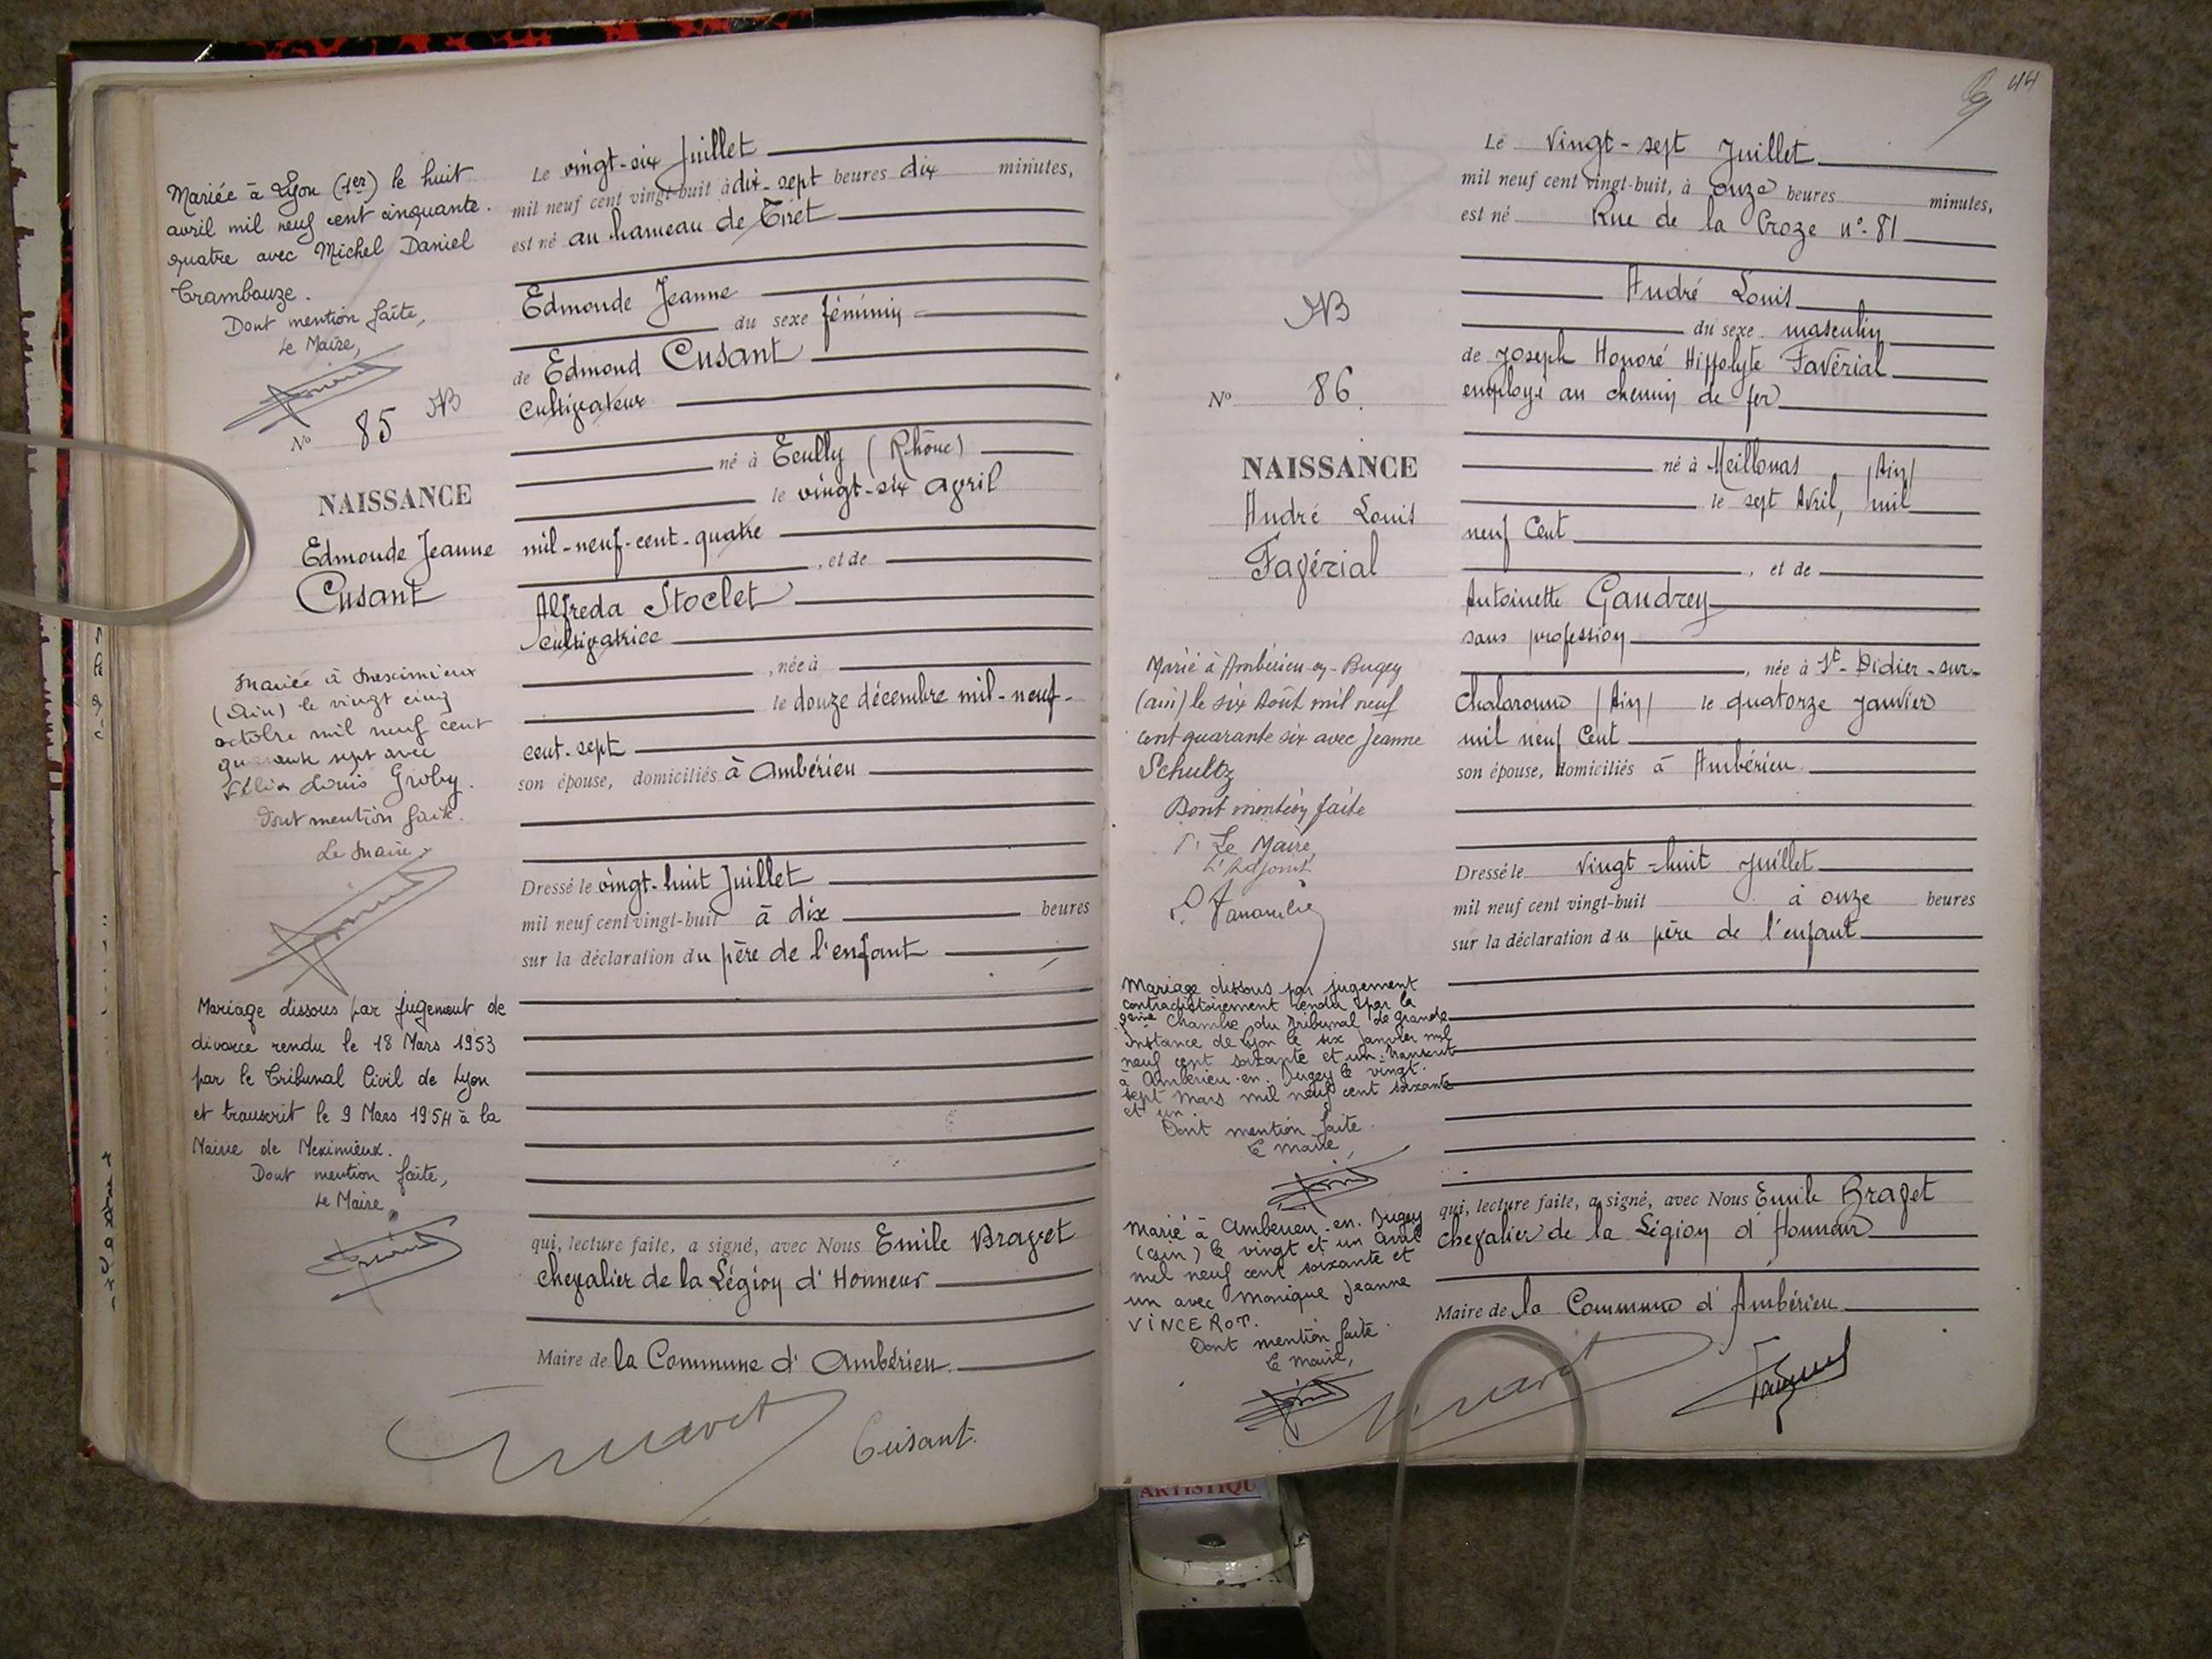 Mariée à Lyon (1er) le huit
avril mil neuf cent cinquante.
quatre avec Michel Daniel
Crambouze.
Dont mention faite,
Le Maire,
N° 85 NB
NAISSANCE
Edmonde Jeanne
Cusant
Mariée à Meximieux
(Ain) le vingt cinq
octobre mil neuf cent
quarante sept avec
Félix Louis Groby.
Dont mention faite.
Le Maire,
Mariage dissous par jugement de
divorce rendu le 18 Mars 1953
par le Tribunal Civil de Lyon
et transcrit le 9 Mars 1954 à la
Mairie de Meximieux.
Dont mention faite,
Le Maire,
Le vingt-six Juillet
mil neuf cent vingt-huit à dix-sept heures dix minutes,
est né au hameau de Tiret
Edmonde Jeanne
du sexe féminin
de Edmond Cusant
Cultivateur
né à Ecully (Rhône)
le vingt-six avril
mil-neuf-cent-quatre
, et de
Alfreda Stoclet
cultivatrice
, née à
le douze décembre mil-neuf-
cent-sept
son épouse, domiciliés à Ambérieu
Dressé le vingt-huit Juillet
mil neuf cent vingt-huit à dix heures
sur la déclaration du père de l'enfant
qui, lecture faite, a signé, avec Nous Emile Bravet
chevalier de la Légion d'Honneur
Maire de la Commune d'Ambérieu.
Cusant.
44
NB
N° 86.
NAISSANCE
André Louis
Favérial
Marié à Ambérieu-en-Bugey
(ain) le six Août mil neuf
cent quarante six avec Jeanne
Schultz
Dont mention faite
Le Maire,
L'Adjoint
Mariage dissous par jugement
contradictoirement rendu par la
Chambre du Tribunal de Grande
Instance de Lyon le six janvier mil
neuf cent soixante et un. Transcrit
à Ambérieu-en-Bugey le vingt-
sept mars mil neuf cent soixante
et un.
Dont mention faite.
Le maire,
Marié à Ambérieu-en-Bugey
(ain) le vingt et un avril
mil neuf cent soixante et
un avec Monique Jeanne
VINCEROT.
Dont mention faite.
Le maire,
Le Vingt-sept Juillet
mil neuf cent vingt-huit, à onze heures minutes,
est né Rue de la Croze n°-81
André Louis
du sexe masculin
de Joseph Honoré Hippolyte Favérial
employé au chemin de fer
né à Meillonas (Ain)
le sept Avril, mil
neuf Cent
, et de
Antoinette Gaudrey
sans profession
, née à St-Didier-sur-
Chalaronne (Ain) le quatorze Janvier
mil neuf Cent
son épouse, domiciliés à Ambérieu.
Dressé le Vingt-huit Juillet
mil neuf cent vingt-huit à onze heures
sur la déclaration du père de l'enfant
qui, lecture faite, a signé, avec Nous Emile Bravet
chevalier de la Légion d'Honneur
Maire de la Commune d'Ambérieu
ARTISTIQU